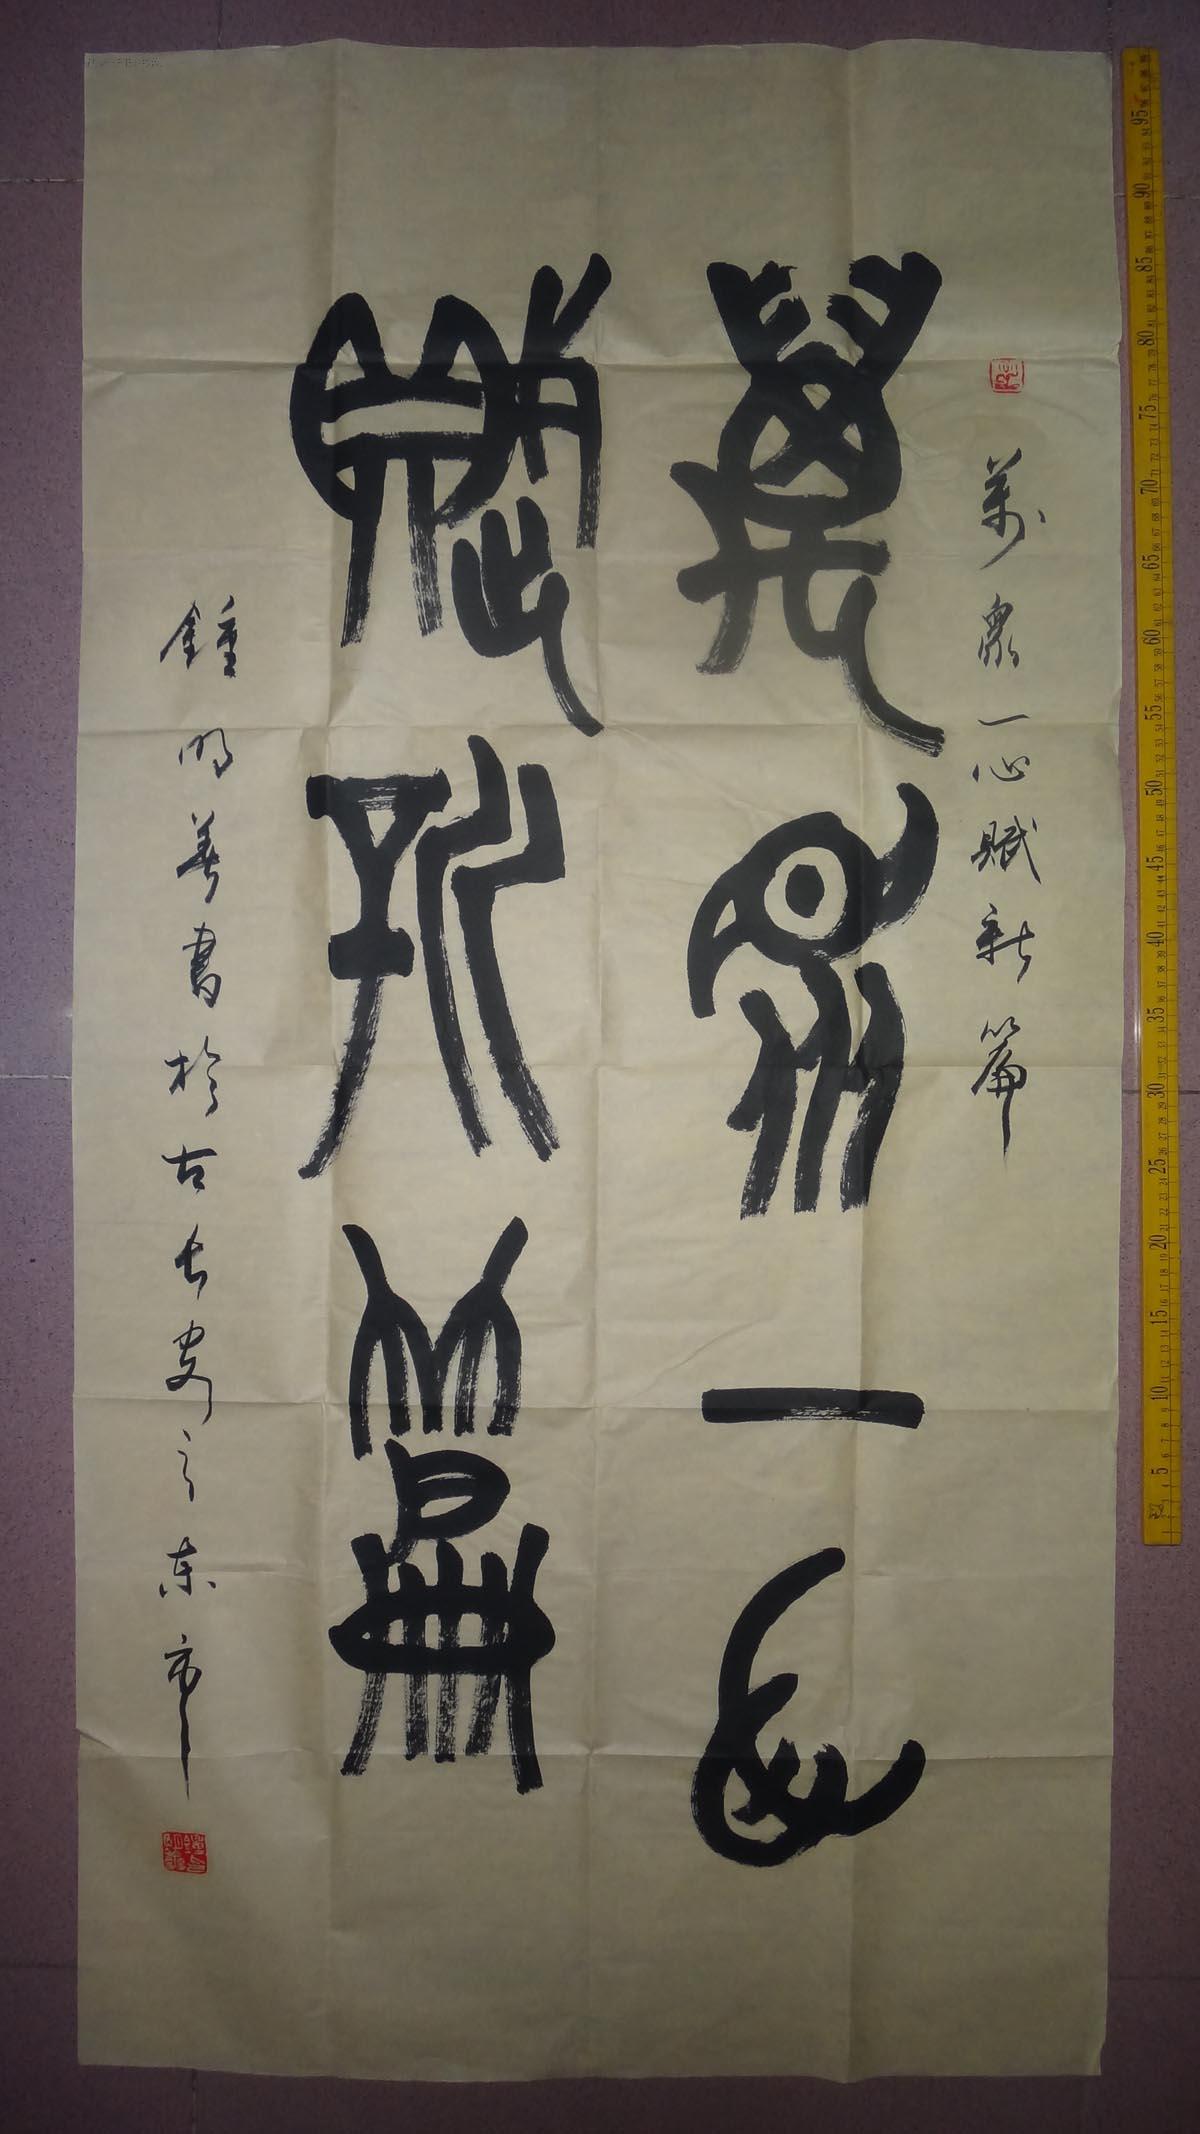 萬眾一心賦新篇
萬眾一心
賦新篇
鍾明善書於古長安之東市
95
90
85
80
75
70
65
60
55
50
45
40
35
30
25
20
15
10
5